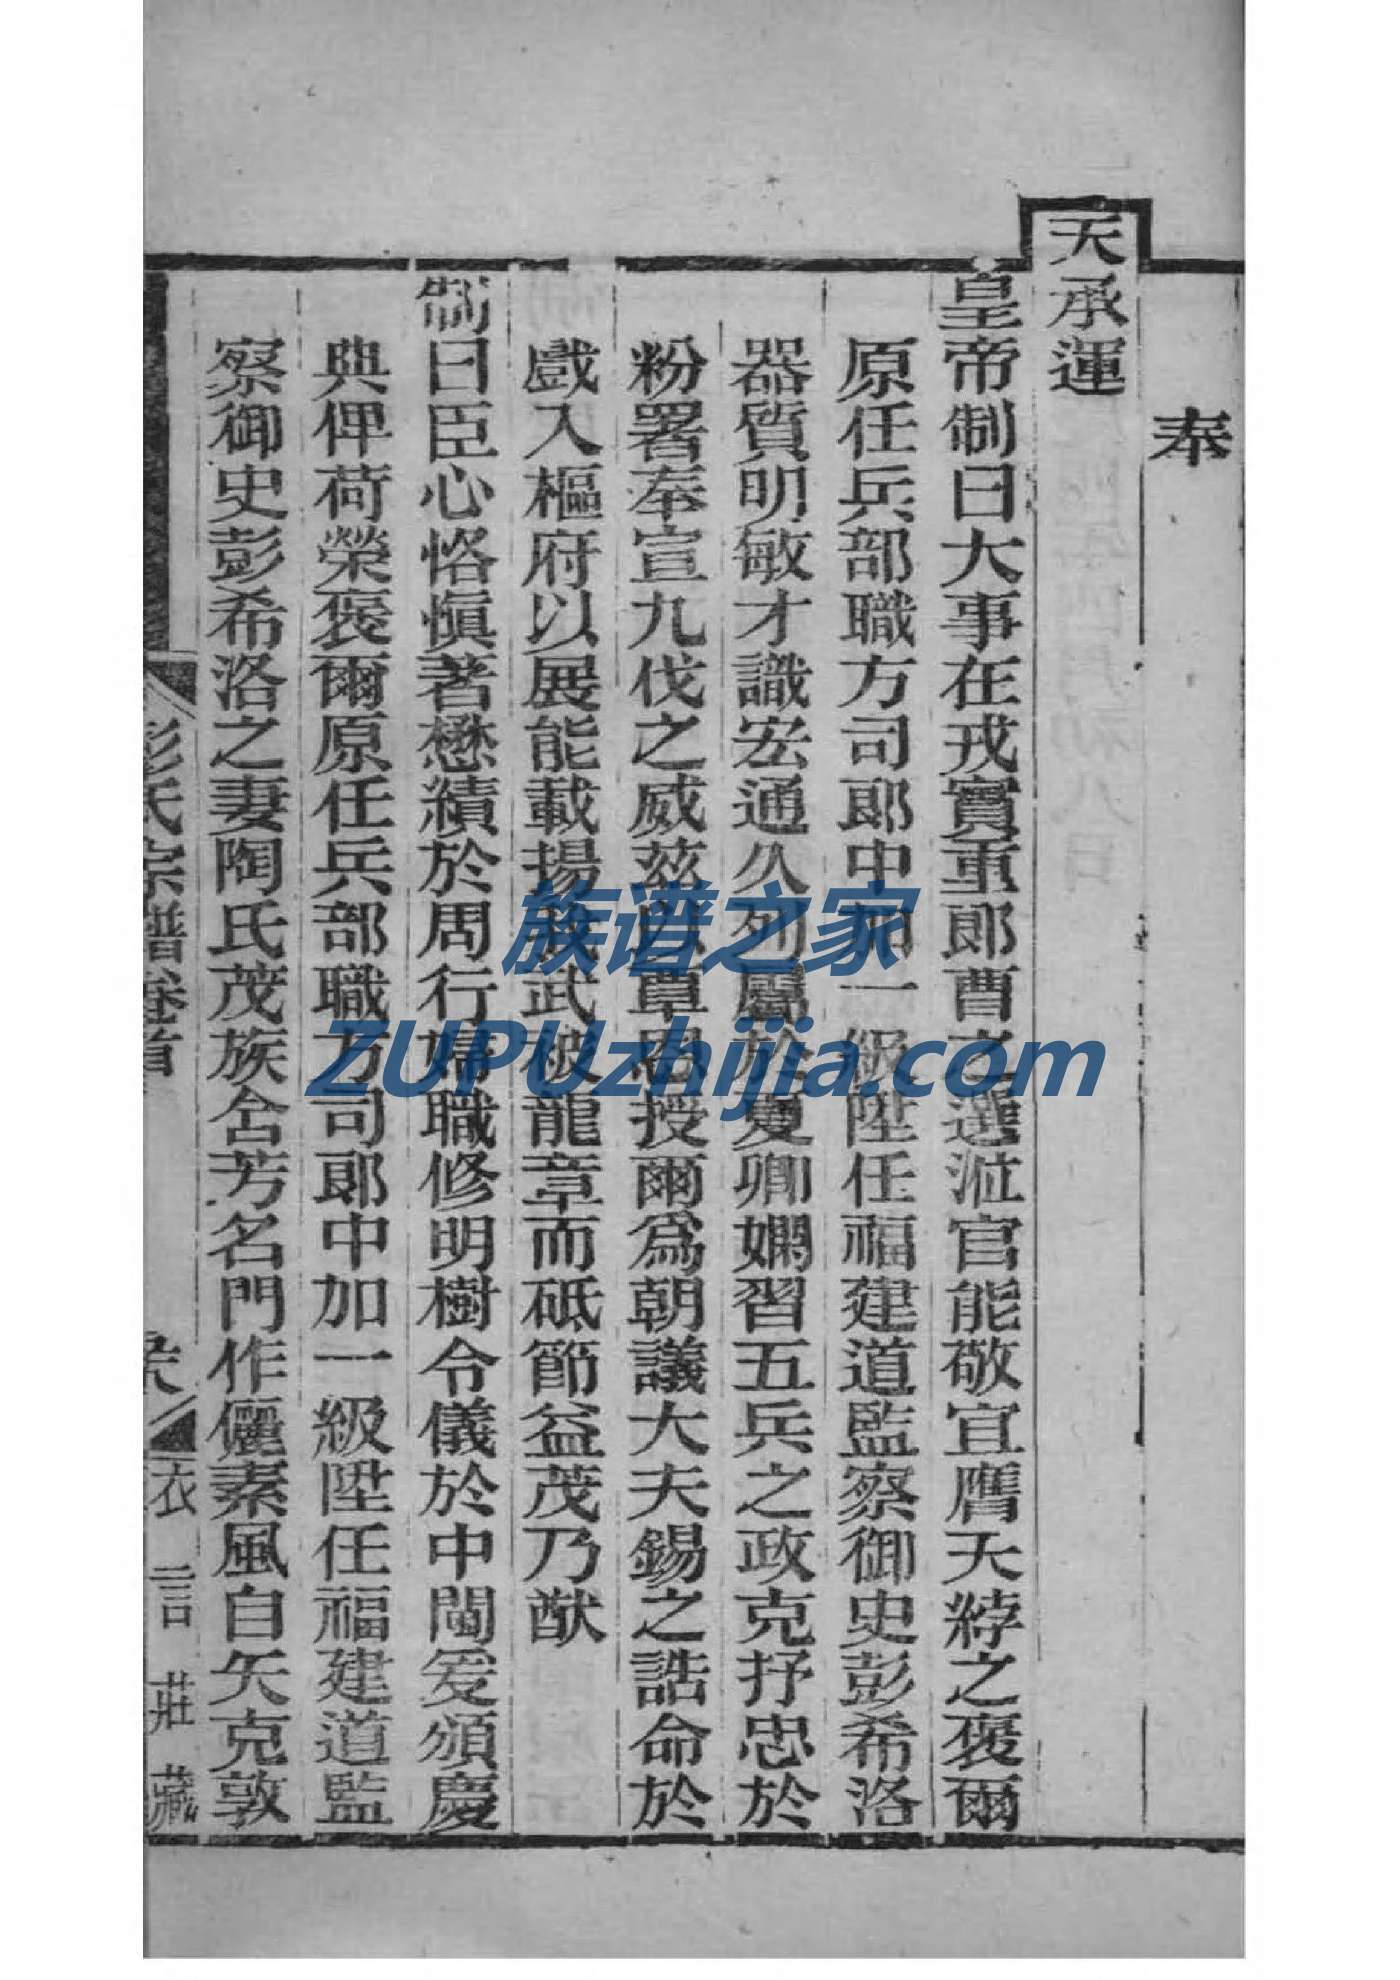 奉
天承運
皇帝制曰大事在戎實重郎曹之選涖官能敬宜膺天綍之褒爾
原任兵部職方司郎中加一級陞任福建道監察御史彭希洛
器質明敏才識宏通久列屬於夏卿嫻習五兵之政克抒忠於
粉署奉宣九伐之威茲以覃恩授爾為朝議大夫錫之誥命於
戲入樞府以展能載揚我武被龍章而砥節益茂乃猷
制曰臣心恪慎著懋績於周行婦職修明樹令儀於中閫爰頒慶
典俾荷榮褒爾原任兵部職方司郎中加一級陞任福建道監
察御史彭希洛之妻陶氏茂族含芳名門作儷素風自矢克敦
彭氏宗譜卷首
衣言莊藏
族谱之家
ZUPUzhijia.com